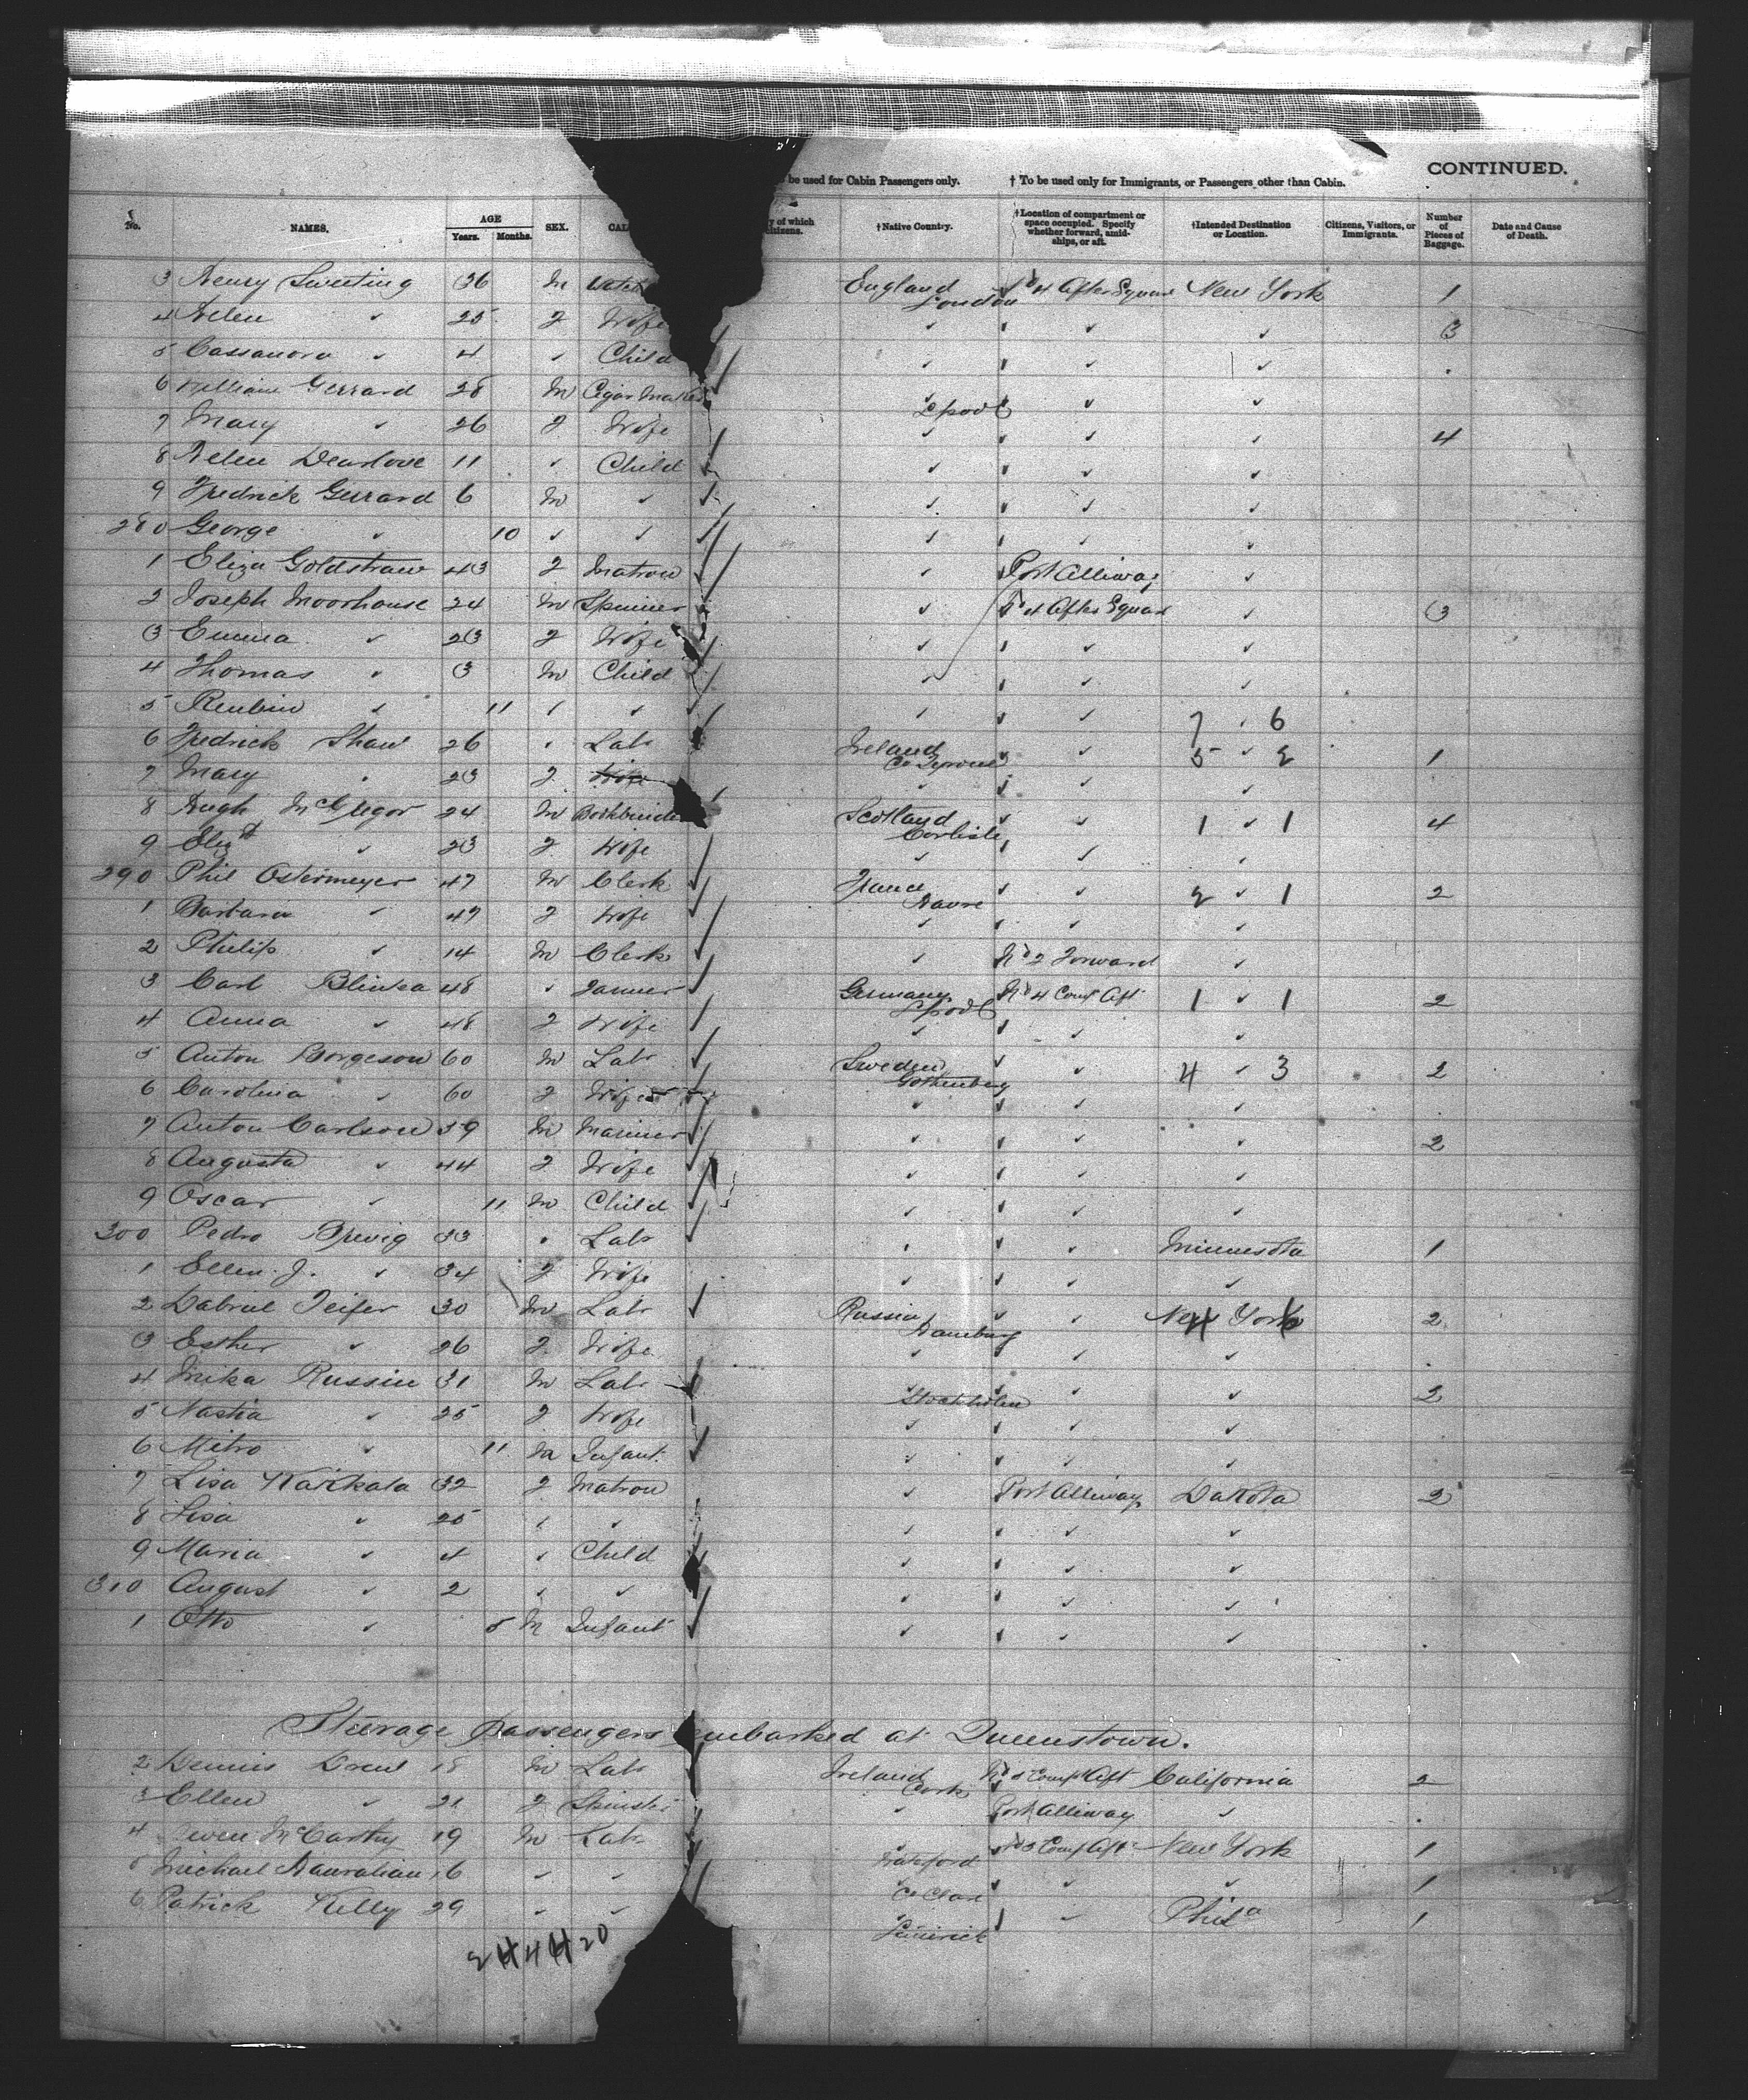 CONTINUED.
be used for Cabin Passengers only. † To be used only for Immigrants, or Passengers other than Cabin.
No. NAMES. AGE Years. Months. SEX. CAL y of which itizens. †Native Country. †Location of compartment or space occupied. Specify whether forward, amidships, or aft. †Intended Destination or Location. Citizens, Visitors, or Immigrants. Number of Pieces of Baggage. Date and Cause of Death.
3 Henry Sweeting 36 M England London No 4 After Square New York 1
4 Helen " 25 F Wife " " " 3
5 Cassanora " 4 " Child " " "
6 William Gerrard 28 M Cigar Maker " Lpool " "
7 Mary " 26 F Wife " " " 4
8 Helen Dearlove 11 " Child " " "
9 Fredrick Gerrard 6 M " " " "
280 George " 10 " " " " "
1 Eliza Goldstraw 43 F Matron " Port Alliway "
2 Joseph Moorhouse 24 M Spinner " No 4 After Square " 3
3 Emma " 23 F Wife " " "
4 Thomas " 3 M Child " " "
5 Reubin " 11 " " " " 7 " 6
6 Fredrick Shaw 26 " Labr Ireland Co Tyrone " 5 " 2 1
7 Mary " 23 F Wife " " "
8 Hugh McGregor 24 M Bookbinder Scotland Carlisle " 1 " 1 4
9 Elizth " 23 F Wife " " "
290 Phil Ostermeyer 47 M Clerk France Havre " 2 " 1 2
1 Barbara " 47 F Wife " " "
2 Philip " 14 M Clerk " No 2 Forward "
3 Carl Blinka 48 " Farmer Germany Lpool No 4 Compt Aft 1 " 1 2
4 Anna " 48 F Wife " " "
5 Anton Borgeson 60 M Labr Sweden Gothenburg " 4 " 3 2
6 Carolina " 60 F Wife " " "
7 Anton Carlson 39 M Mariner " " " 2
8 Augusta " 44 F Wife " " "
9 Oscar " 11 M Child " " "
300 Pedro 33 " Labr " " Minnesota 1
1 Ellen J. " 34 F Wife " " "
2 Gabriel Teifer 30 M Labr Russia Hamburg " New York 2
3 Esther " 26 F Wife " " "
4 Mika Russin 31 M Labr " Stockholm " " 2
5 Nastia " 25 F Wife " " "
6 Mitro " 11 M Infant " " "
7 Lisa Karkala 32 F Matron " Port Alliway Dakota 2
8 Lisa " 25 " " " " "
9 Maria " 4 " Child " " "
310 August " 2 " " " " "
1 Otto " 5 M Infant " " "
Steerage passengers embarked at Queenstown.
2 Dennis Drew 18 M Labr Ireland Cork No 3 Compt Aft California 2
3 Ellen " 21 F Spinster " Port Alliway "
4 McCarthy 19 M Labr Waterford No 3 Compt Aft New York 1
5 Michael 16 " " Co Clare " " 1
6 Patrick Kelly 29 " " Limerick " Phila 1